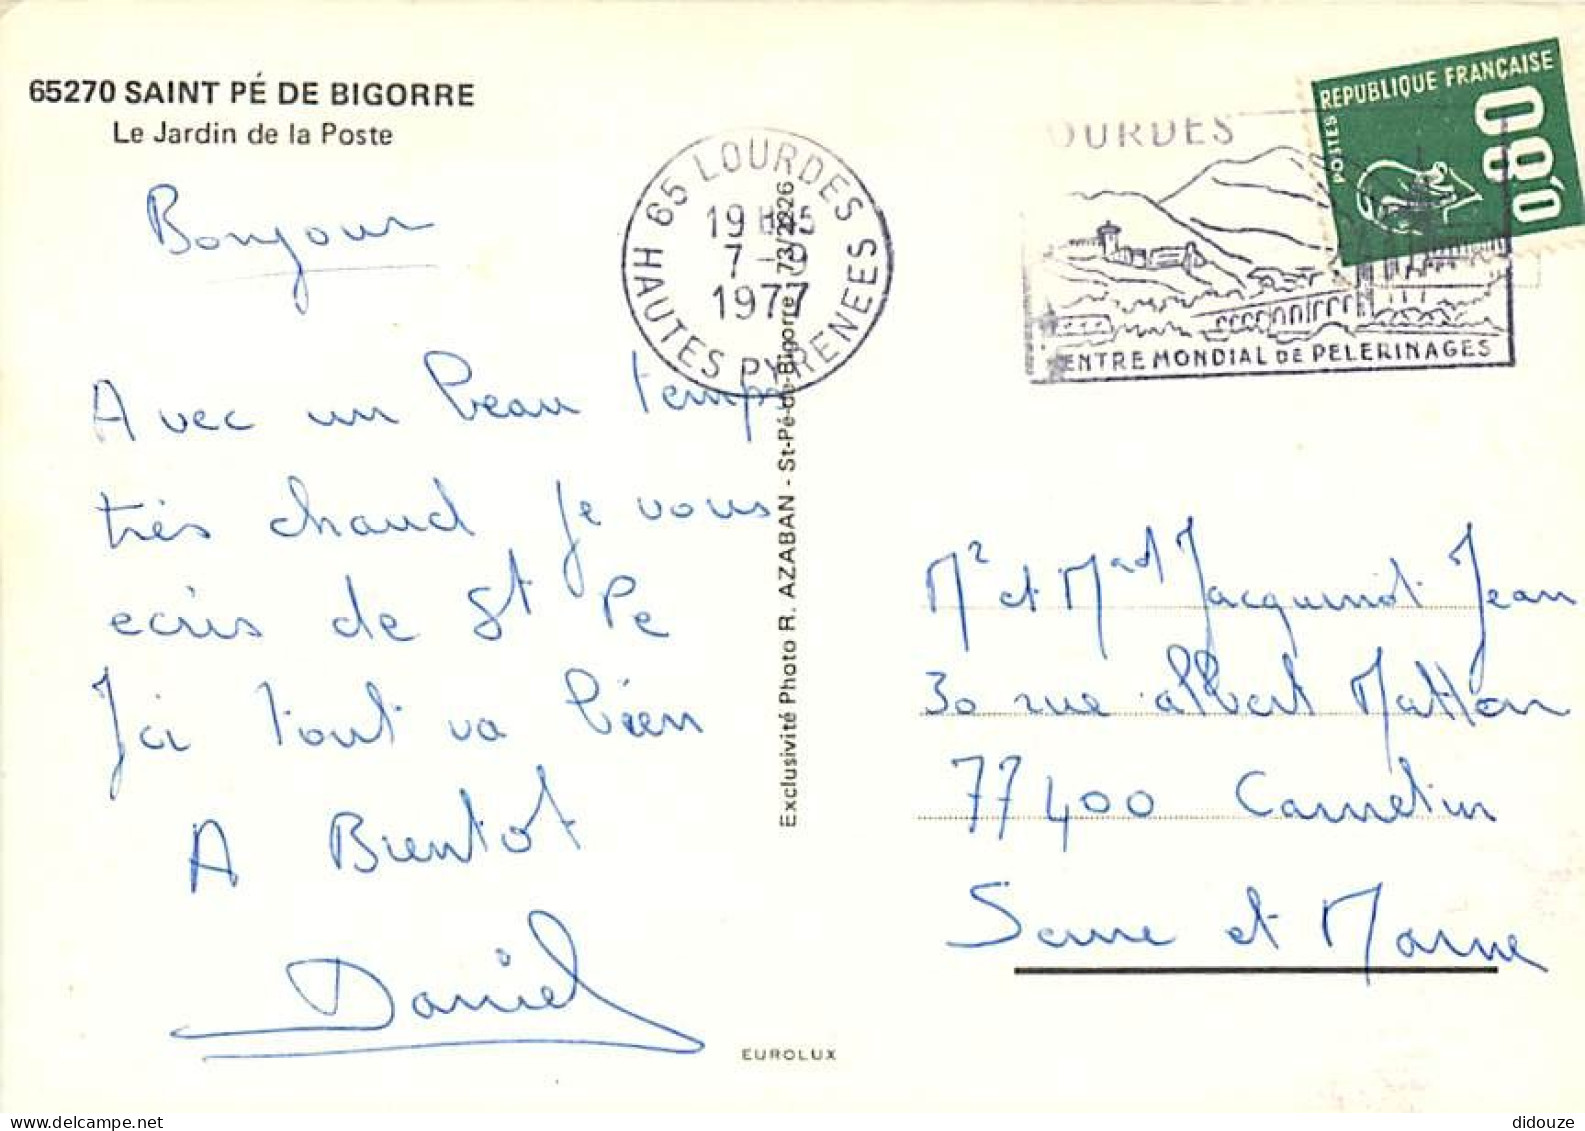 65270 SAINT PÉ DE BIGORRE
Le Jardin de la Poste
Bonjour
Avec un beau temps
très chaud je vous
ecris de St Pe
Ici tout va bien
A Bientot
Daniel
65 LOURDES
19 H45
7 - 9
1977
HAUTES PYRENEES
Exclusivité Photo R. AZABAN - St-Pé-de-Bigorre 73/2226
EUROLUX
OURDES
ENTRE MONDIAL DE PELERINAGES
REPUBLIQUE FRANÇAISE
POSTES
0,80
Mr et Mad Jacquinot Jean
30 rue albert Matton
77400 Carnetin
Seine et Marne
didouze